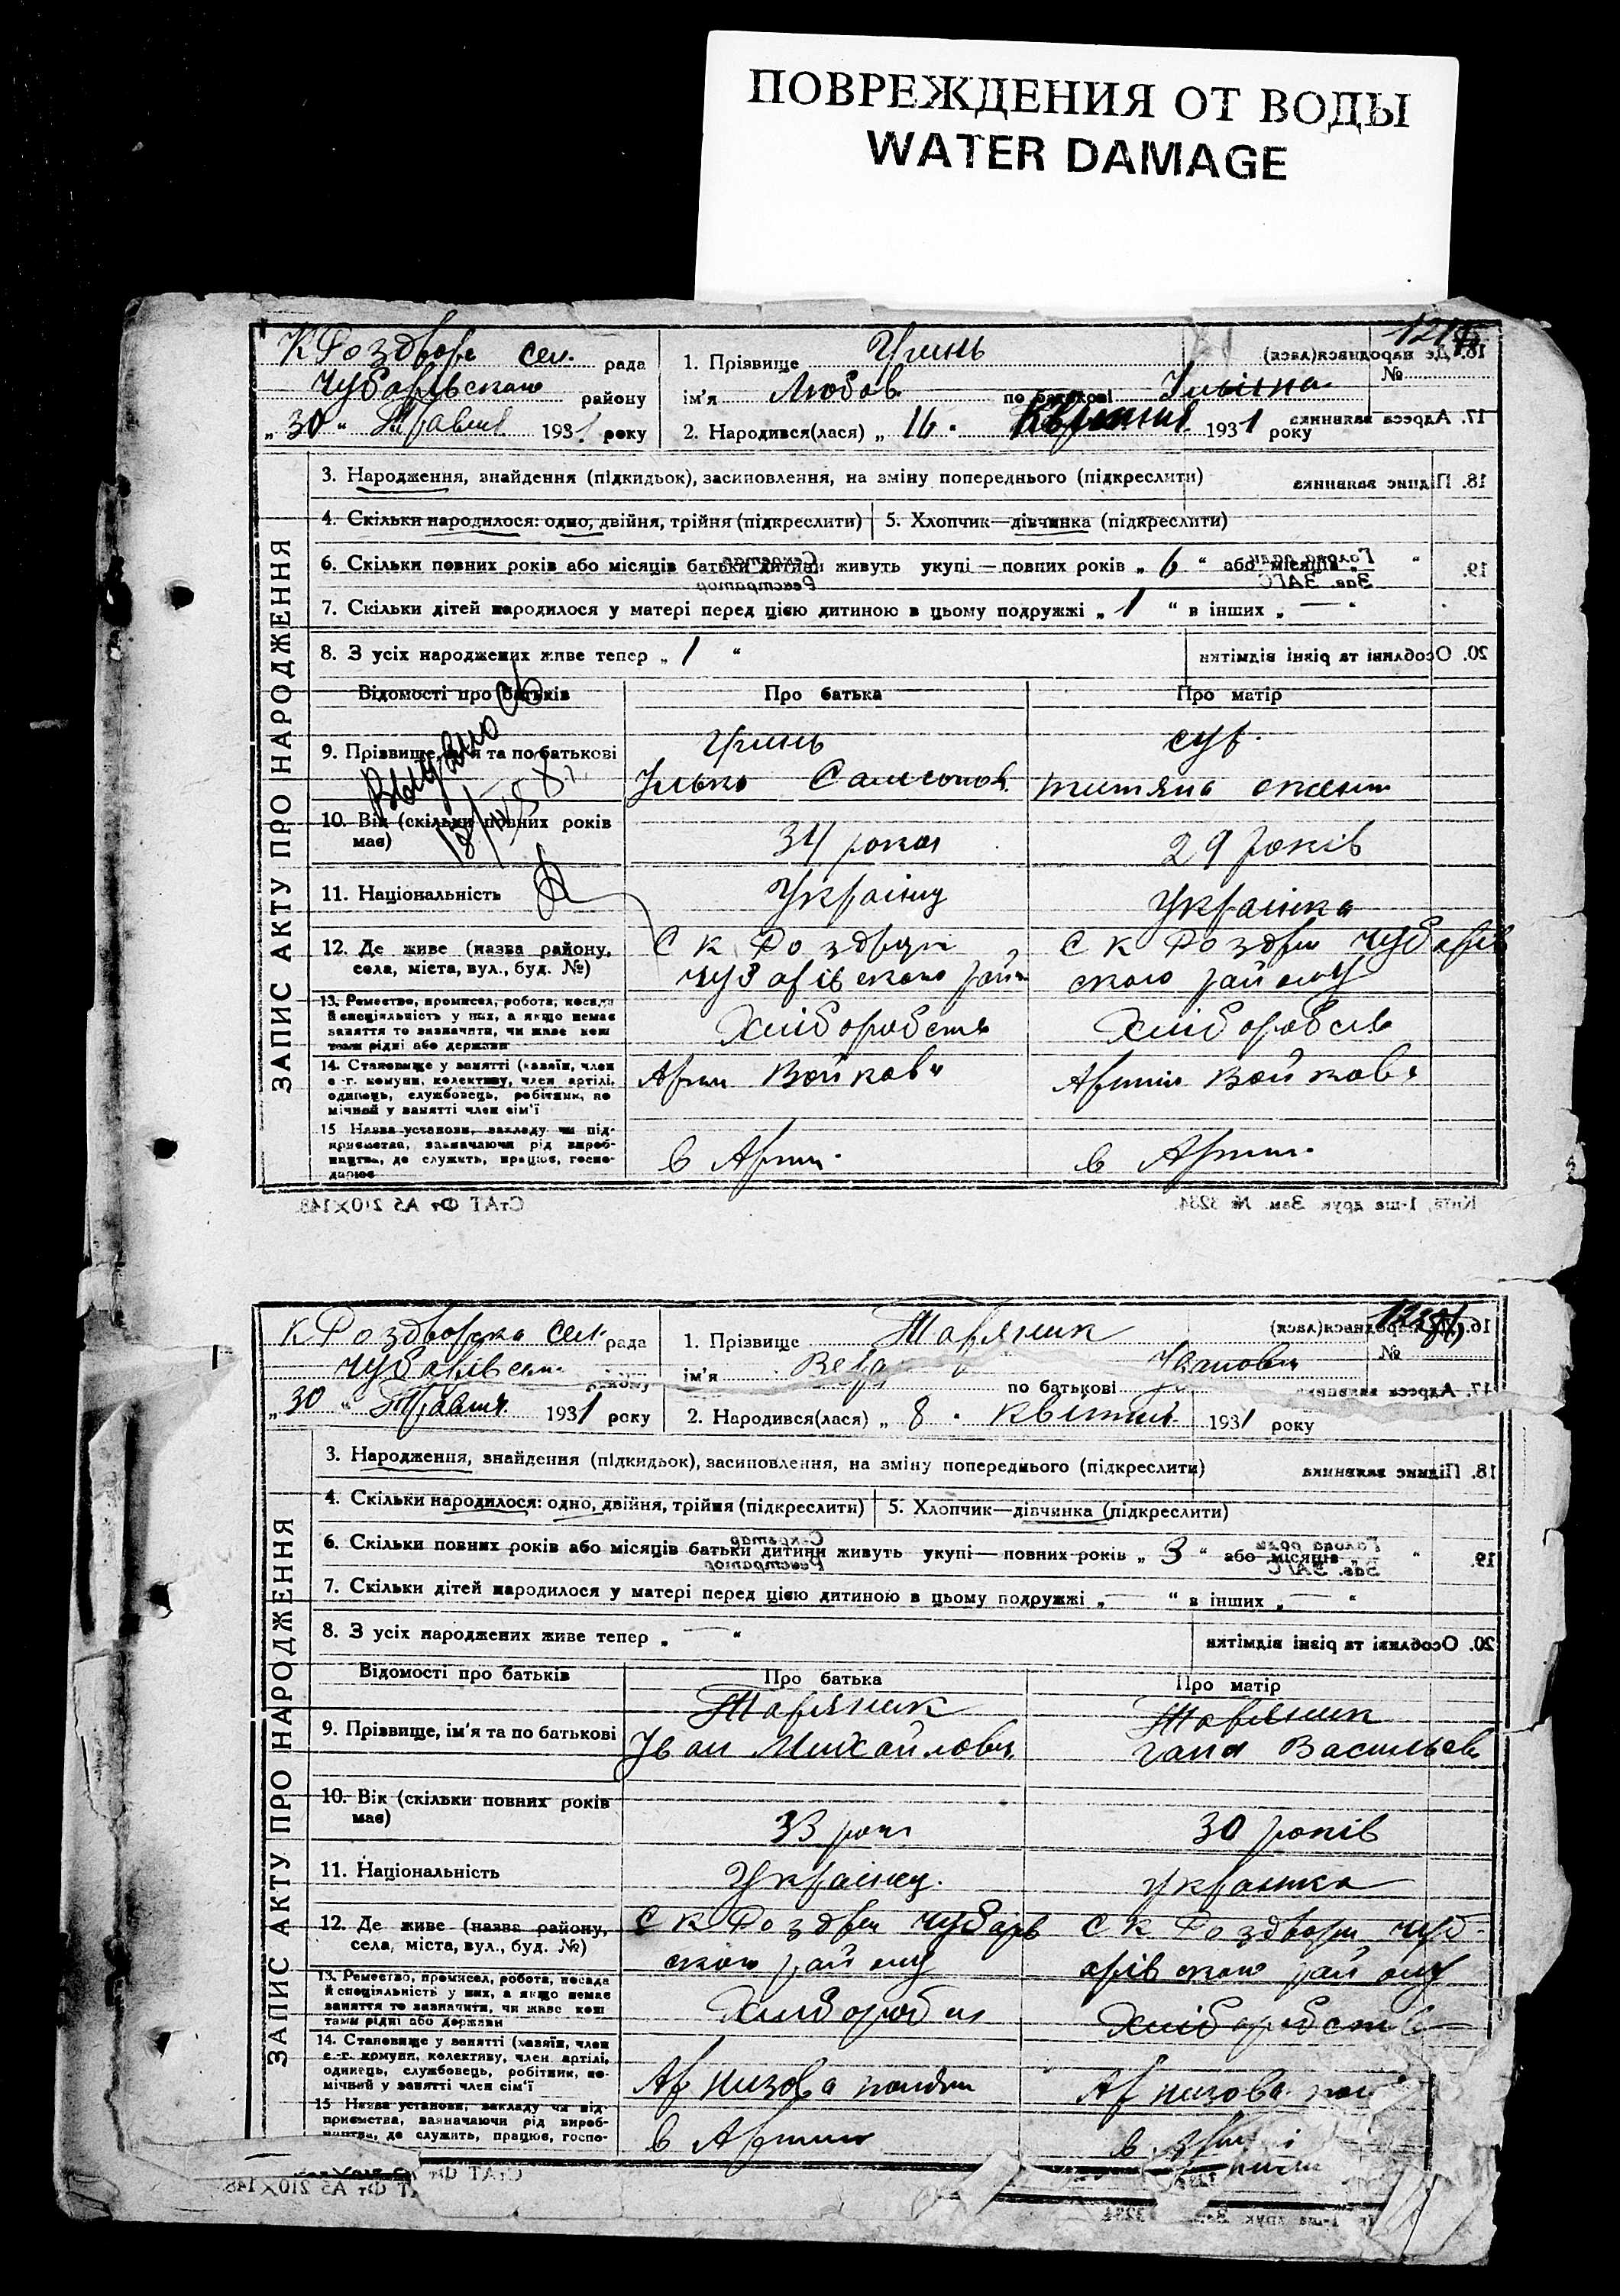 ПОВРЕЖДЕНИЯ ОТ ВОДЫ
WATER DAMAGE
К Роздворс сел. рада
Чубарівського району
„ 30 “ Травня 1931 року
1. Прізвище Гринь
ім'я Любов по батькові
2. Народився(лася) „ 16 “ Квітня 1931 року
№
16. Де народився(лася)
17. Адреса заявника
ЗАПИС АКТУ ПРО НАРОДЖЕННЯ
3. Народження, знайдення (підкидьок), засиновлення, на зміну попереднього (підкреслити)
18. Підпис заявника
4. Скільки народилося: одно, двійня, трійня (підкреслити) 5. Хлопчик—дівчинка (підкреслити)
6. Скільки повних років або місяців батьки дитини живуть укупі — повних років „ 6 “ або місяців „ “
Секретар
Реєстратор
Голова ради
Зав. ЗАГС
19.
7. Скільки дітей народилося у матері перед цією дитиною в цьому подружжі „ 1 “ в інших „ — “
8. З усіх народжених живе тепер „ 1 “
20. Особливі та різні відмітки
Відомості про батьків Про батька Про матір
9. Прізвище, ім'я та по батькові
Гринь
Ілько Самсонов.
Титяна
10. Вік (скільки повних років має)
34 роки
29 років
11. Національність
Українец
Українка
12. Де живе (назва району, села, міста, вул., буд. №)
С К Роздори
Чубарівского район
С К Роздори Чубарів
ского району
13. Ремество, промисел, робота, посада
й спеціяльність у них, а якщо немає
заняття то зазначити, чи живе кош
тами рідні або держави
Хліборобств
Хліборобств
14. Становище у занятті (хазяїн, член
с.-г. комуни, колективу, член артілі,
одинець, службовець, робітник, по
мічний у занятті член сім'ї
Артіл Войкова
Артіль Войкова
15 Назва установи, закладу чи під-
приємства, зазначаючи рід вироб-
ництва, де служить, працює, госпо-
дарює
в Артіл.
в Артіл.
СтАТ Фт А5 210×148.
Київ, 1-ша друк. Зам. № 3234.
К Роздворска сел. рада
Чубарівськ
„ 30 “ Травня 1931 року
1. Прізвище Таряник
ім'я Вера по батькові Івановна
2. Народився(лася) „ 8 “ квітня 1931 року
№
16. Де народився(лася)
17. Адреса заявника
ЗАПИС АКТУ ПРО НАРОДЖЕННЯ
3. Народження, знайдення (підкидьок), засиновлення, на зміну попереднього (підкреслити)
18. Підпис заявника
4. Скільки народилося: одно, двійня, трійня (підкреслити) 5. Хлопчик—дівчинка (підкреслити)
6. Скільки повних років або місяців батьки дитини живуть укупі — повних років „ 3 “ або місяців „ “
Секретар
Реєстратор
Голова ради
Зав. ЗАГС
19.
7. Скільки дітей народилося у матері перед цією дитиною в цьому подружжі „ — “ в інших „ — “
8. З усіх народжених живе тепер „ — “
20. Особливі та різні відмітки
Відомості про батьків Про батька Про матір
9. Прізвище, ім'я та по батькові
Таряник
Іван Михайлович
Таряник
Гапа Васильев
10. Вік (скільки повних років має)
33 роки
30 років
11. Національність
Українец.
українка
12. Де живе (назва району, села, міста, вул., буд. №)
С К Роздори Чубарів
ского району
С К Роздори Чуб-
арівского району
13. Ремество, промисел, робота, посада
й спеціяльність у них, а якщо немає
заняття то зазначити, чи живе кош
тами рідні або держави
Хлібороб
Хліборобств
14. Становище у занятті (хазяїн, член
с.-г. комуни, колективу, член артілі,
одинець, службовець, робітник, по-
мічний у занятті член сім'ї
15 Назва установи, закладу чи під
приємства, зазначаючи рід вироб-
ництва, де служить, працює, госпо-
в Артіл
СтАТ Фт А5 210×148.